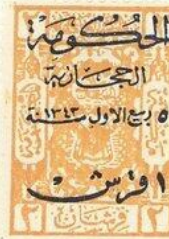 الحكومة
الحجازية
٥ ربيع الاول سنة ١٣٤٣
١ قرش
٢ قرشان ٢